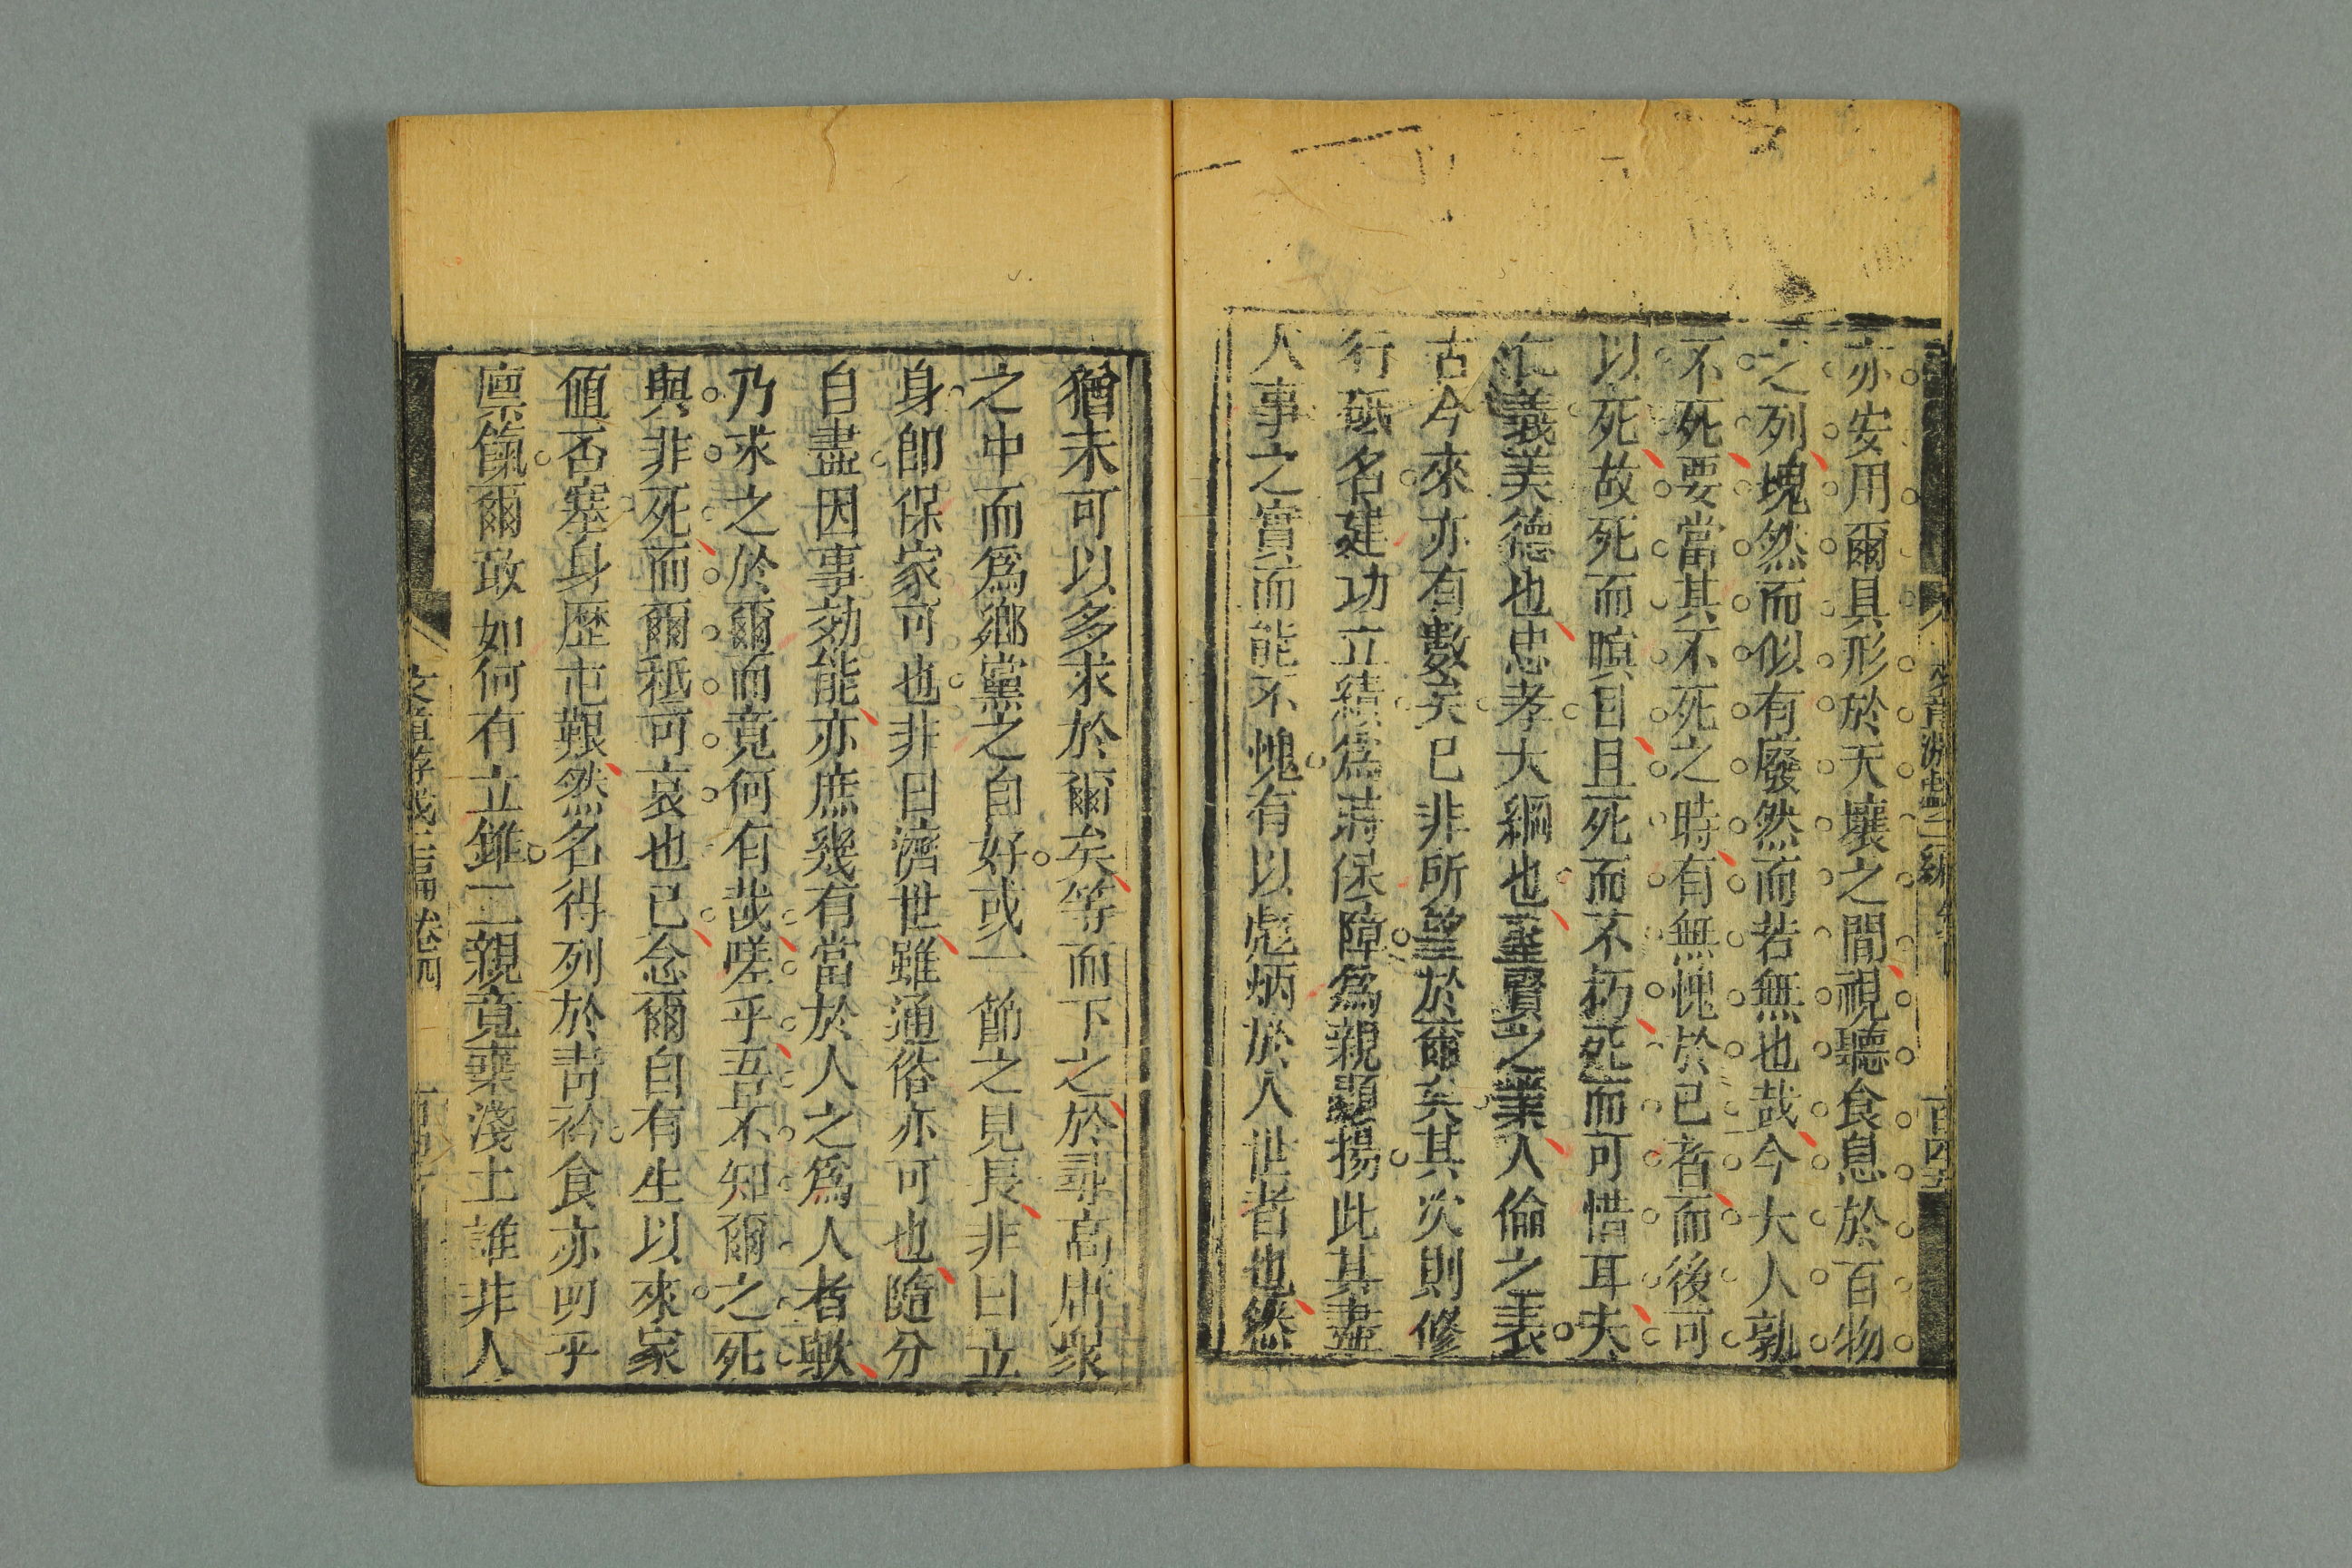 亦安用爾具形於天壤之間視聽食息於百物
之列塊然而似有廢然而若無也哉今大人孰
不死要當其不死之時有無愧於已者而後可
以死故死而瞑目且死而不朽死而可惜耳夫
仁義美德也忠孝大綱也聖賢之業人倫之表
古今來亦有數矣已非所望於爾矣其次則修
行砥名建功立績爲時保障爲親顯揚此其盡
人事之實而能不愧有以彪炳於人世者也然
猶未可以多求於爾矣等而下之於尋高庸衆
之中而爲鄉黨之自好或一節之見長非曰立
身卽保家可也非曰濟世雖通俗亦可也隨分
自盡因事効能亦庶幾有當於人之爲人者歟
乃求之於爾而竟何有哉嗟乎吾不知爾之死
與非死而爾秪可哀也已念爾自有生以來家
値否塞身歷屯艱然名得列於靑衿食亦叨乎
廩餼爾敢如何有立錐二親竟棄淺土誰非人
百四五